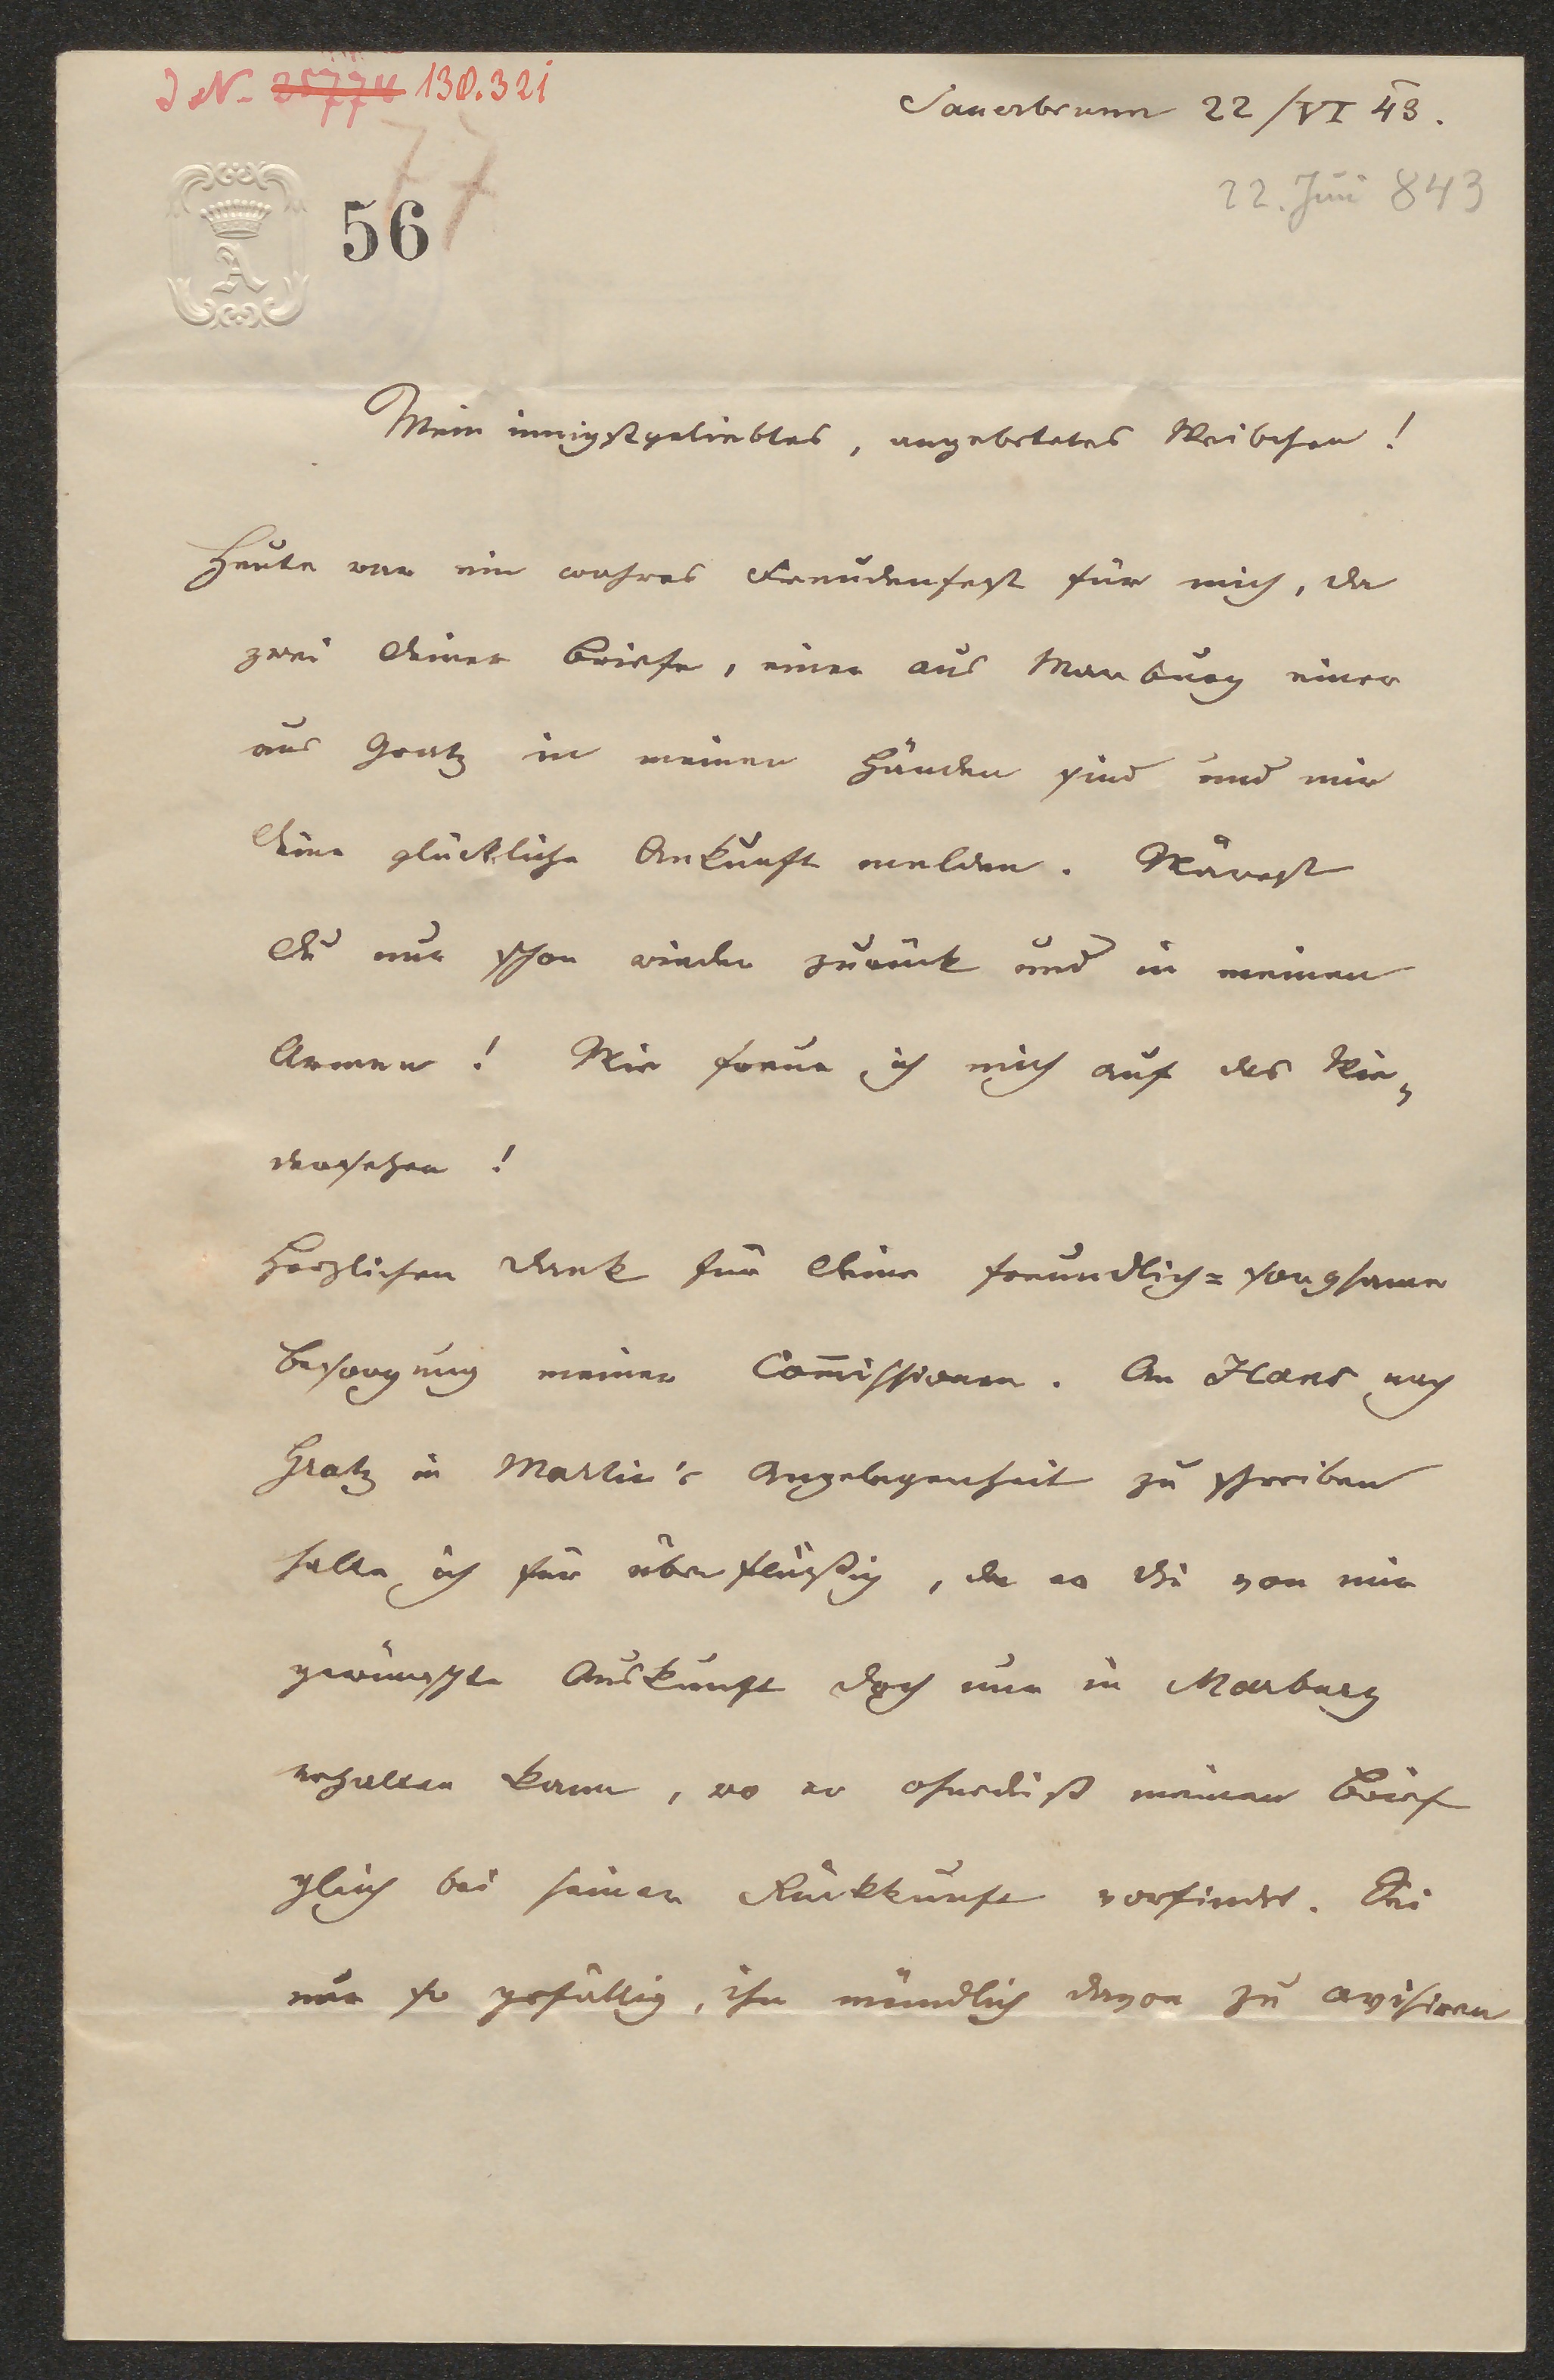 J N. 25774 130.321
Sauerbrunn 22/VI 43.
22. Juni 843
77
56
A
Mein innigstgeliebtes, angebetetes Weibchen!
Heute war ein wahres Freudenfest für mich, da
zwei Deiner Briefe, einer aus Marburg einer
aus Gratz in meinen Händen sind und mir
Deine glückliche Ankunft melden. Wärest
Du nur schon wieder zurück und in meinen
Armen! Wie freue ich mich auf das Wie=
dersehen!
Herzlichen Dank für Deine freundlich=sorgsame
Besorgung meiner Com̄issionen. An Hans nach
Gratz in Martin's Angelegenheit zu schreiben
halte ich für überflüßig, da er die von mir
gewünschte Auskunft doch nur in Marburg
erhalten kann, wo er ohnediß meinen Brief
gleich bei seiner Rückkunft vorfindet. Sei
nur so gefällig, ihn mündlich davon zu avisiren